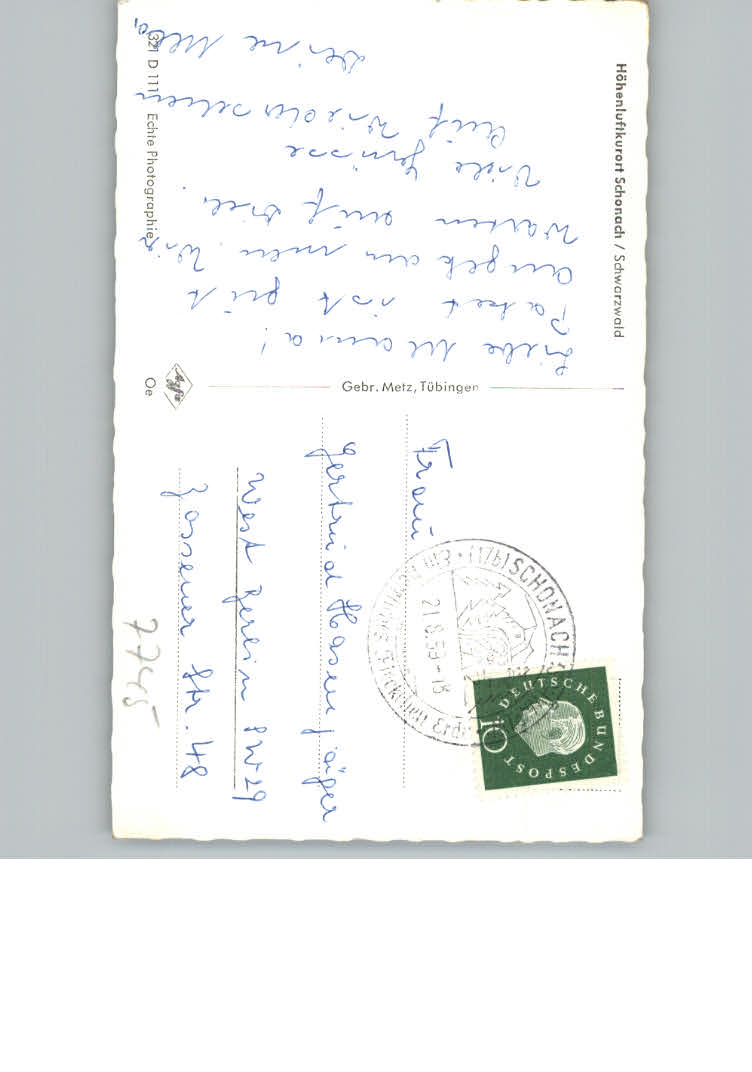 Höhenluftkurort Schonach / Schwarzwald
Liebe Mama!
Paket ist gut
angekommen. Wir
warten auf dich.
Viele Grüsse
Auf Wiedersehen
Deine
321 D 111 Echte Photographie
Gebr. Metz, Tübingen
Agfa
Oe
Frau
Gertrud Hasenjäger
West Berlin SW 29
Zossener Str. 48
7745
(17b) SCHONACH
21.8.59-18
DEUTSCHE BUNDESPOST
10